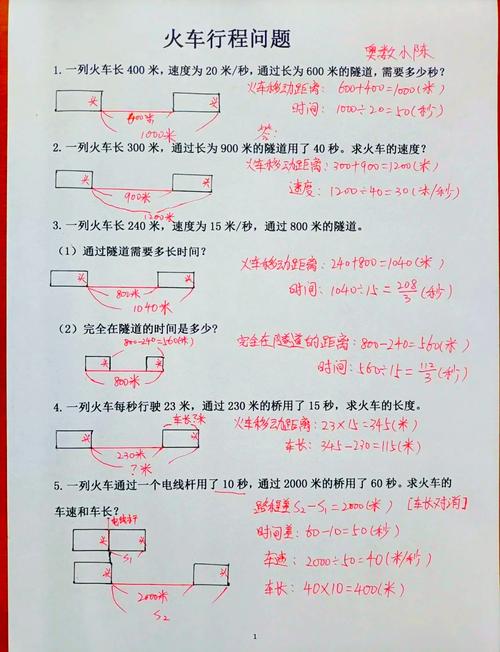 火车行程问题
奥数小陈
1. 一列火车长 400 米，速度为 20 米/秒，通过长为 600 米的隧道，需要多少秒？
火车移动距离：600+400=1000(米)
头 头
600米
时间：1000÷20=50(秒)
1000米
答：
2. 一列火车长 300 米，通过长为 900 米的隧道用了 40 秒。求火车的速度？
火车移动距离：300+900=1200(米)
头 头
900米
速度：1200÷40=30(米/秒)
1200米
3. 一列火车长 240 米，速度为 15 米/秒，通过 800 米的隧道。
（1）通过隧道需要多长时间？
火车移动距离：240+800=1040(米)
头 头
800米
时间：1040÷15=208/3(秒)
1040米
（2）完全在隧道的时间是多少？
800-240=560(米)
完全在隧道的距离：800-240=560(米)
头 头
800米
时间：560÷15=112/3(秒)
4. 一列火车每秒行驶 23 米，通过 230 米的桥用了 15 秒，求火车的长度。
车长?米
火车移动距离：23×15=345(米)
头 头
230米
车长：345-230=115(米)
?米
5. 一列火车通过一个电线杆用了 10 秒，通过 2000 米的桥用了 60 秒。求火车的
车速和车长？
路程差 S2-S1=2000(米) [车长对消]
电线杆
头 头
S1
时间差：60-10=50(秒)
头 头
车速：2000÷50=40(米/秒)
2000米
车长：40×10=400(米)
S2
1